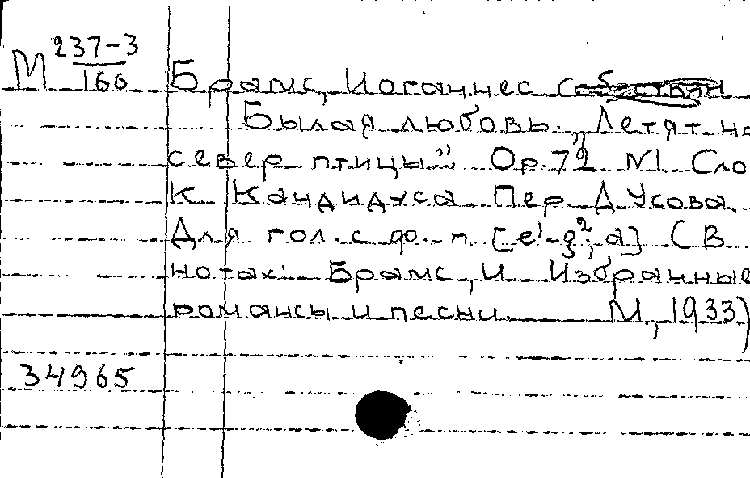 М 237-3/166
Брамс, Иоганнес
Былая любовь. „Летят на
север птицы" Ор. 72 №1 Сло
К Кандидуса Пер Д Усова
Для гол. с фо-п. [e¹-g²; a] (В
нотах: Брамс, И Избранные
романсы и песни М, 1933)
34965